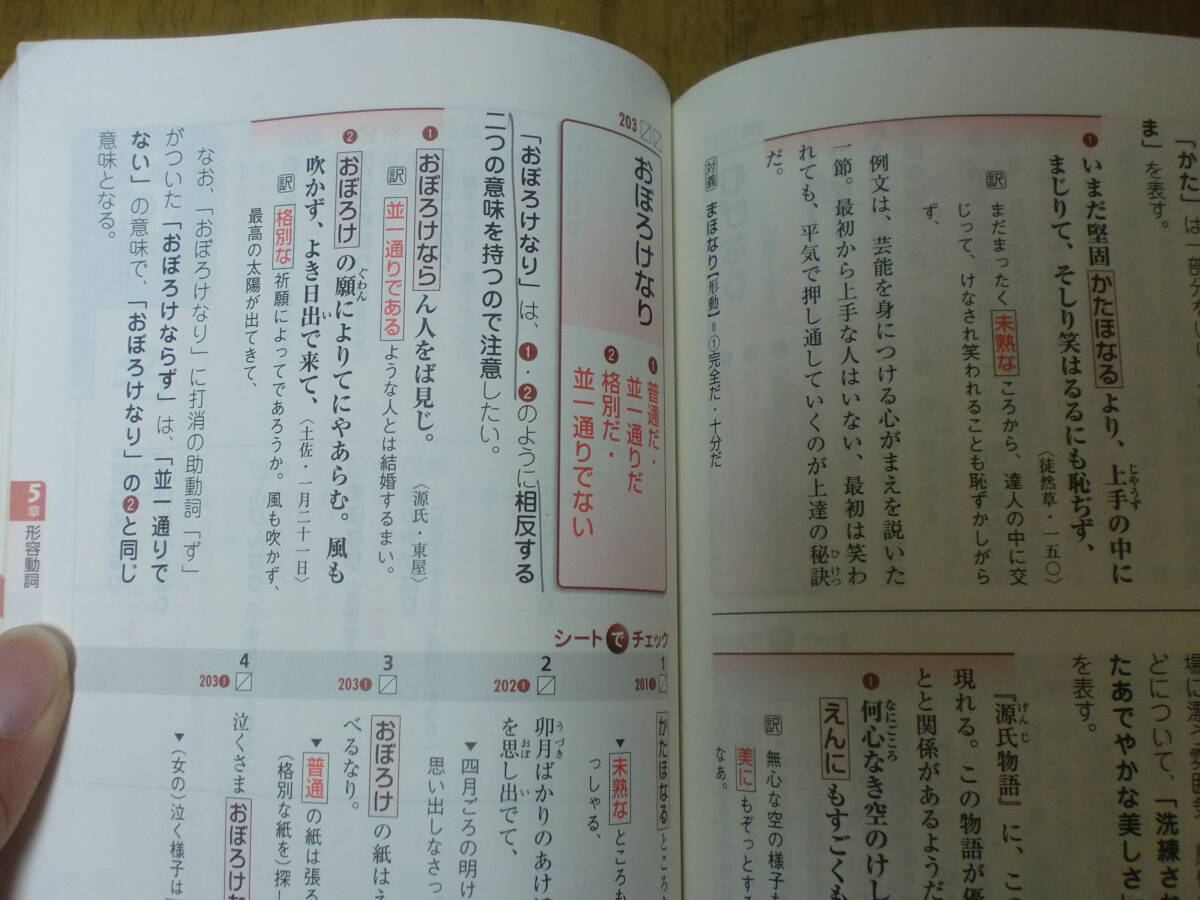 「かた」は一部分な
ま」を表す。
❶いまだ堅固かたほなるより、上手の中に
じやうず
まじりて、そしり笑はるるにも恥ぢず、
〈徒然草・一五〇〉
訳 まだまったく未熟なころから、達人の中に交
じって、けなされ笑われることも恥ずかしがら
ず、
例文は、芸能を身につける心がまえを説いた
一節。最初から上手な人はいない、最初は笑わ
れても、平気で押し通していくのが上達の秘訣
ひけつ
だ。
対義 まほなり【形動】＝①完全だ・十分だ
場に
どについて、「洗練され
たあでやかな美しさ」
を表す。
『源氏物語』に、こ
げんじ
現れる。この物語が優
とと関係があるようだ
❶何心なき空のけし
なにごころ
えんにもすごくも
訳 無心な空の様子も
美にもぞっとする
なあ。
203
おぼろけなり
❶普通だ・
並一通りだ
❷格別だ・
並一通りでない
「おぼろけなり」は、❶・❷のように相反する
二つの意味を持つので注意したい。
❶おぼろけならん人をば見じ。
〈源氏・東屋〉
訳 並一通りであるような人とは結婚するまい。
❷おぼろけの願によりてにやあらむ。風も
ぐわん
吹かず、よき日出で来て、
い
〈土佐・一月二十一日〉
訳 格別な祈願によってであろうか。風も吹かず、
最高の太陽が出てきて、
なお、「おぼろけなり」に打消の助動詞「ず」
がついた「おぼろけならず」は、「並一通りで
ない」の意味で、「おぼろけなり」の❷と同じ
意味となる。
5章 形容動詞
シートでチェック
1
201❶
かたほなるところ
▼未熟なところも
っしゃる、
2
202❶
卯月ばかりのあけ
うづき
を思し出でて、
おぼ い
▼四月ごろの明け
思い出しなさっ
3
203❶
おぼろけの紙はえ
べるなり。
▼普通の紙は張る
（格別な紙を）探し
4
203❶
泣くさまおぼろけな
▼（女の）泣く様子は